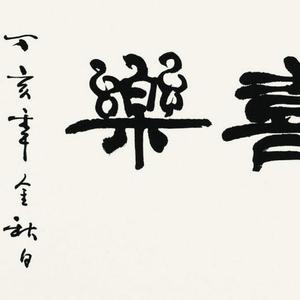 喜樂
丁亥年金秋日